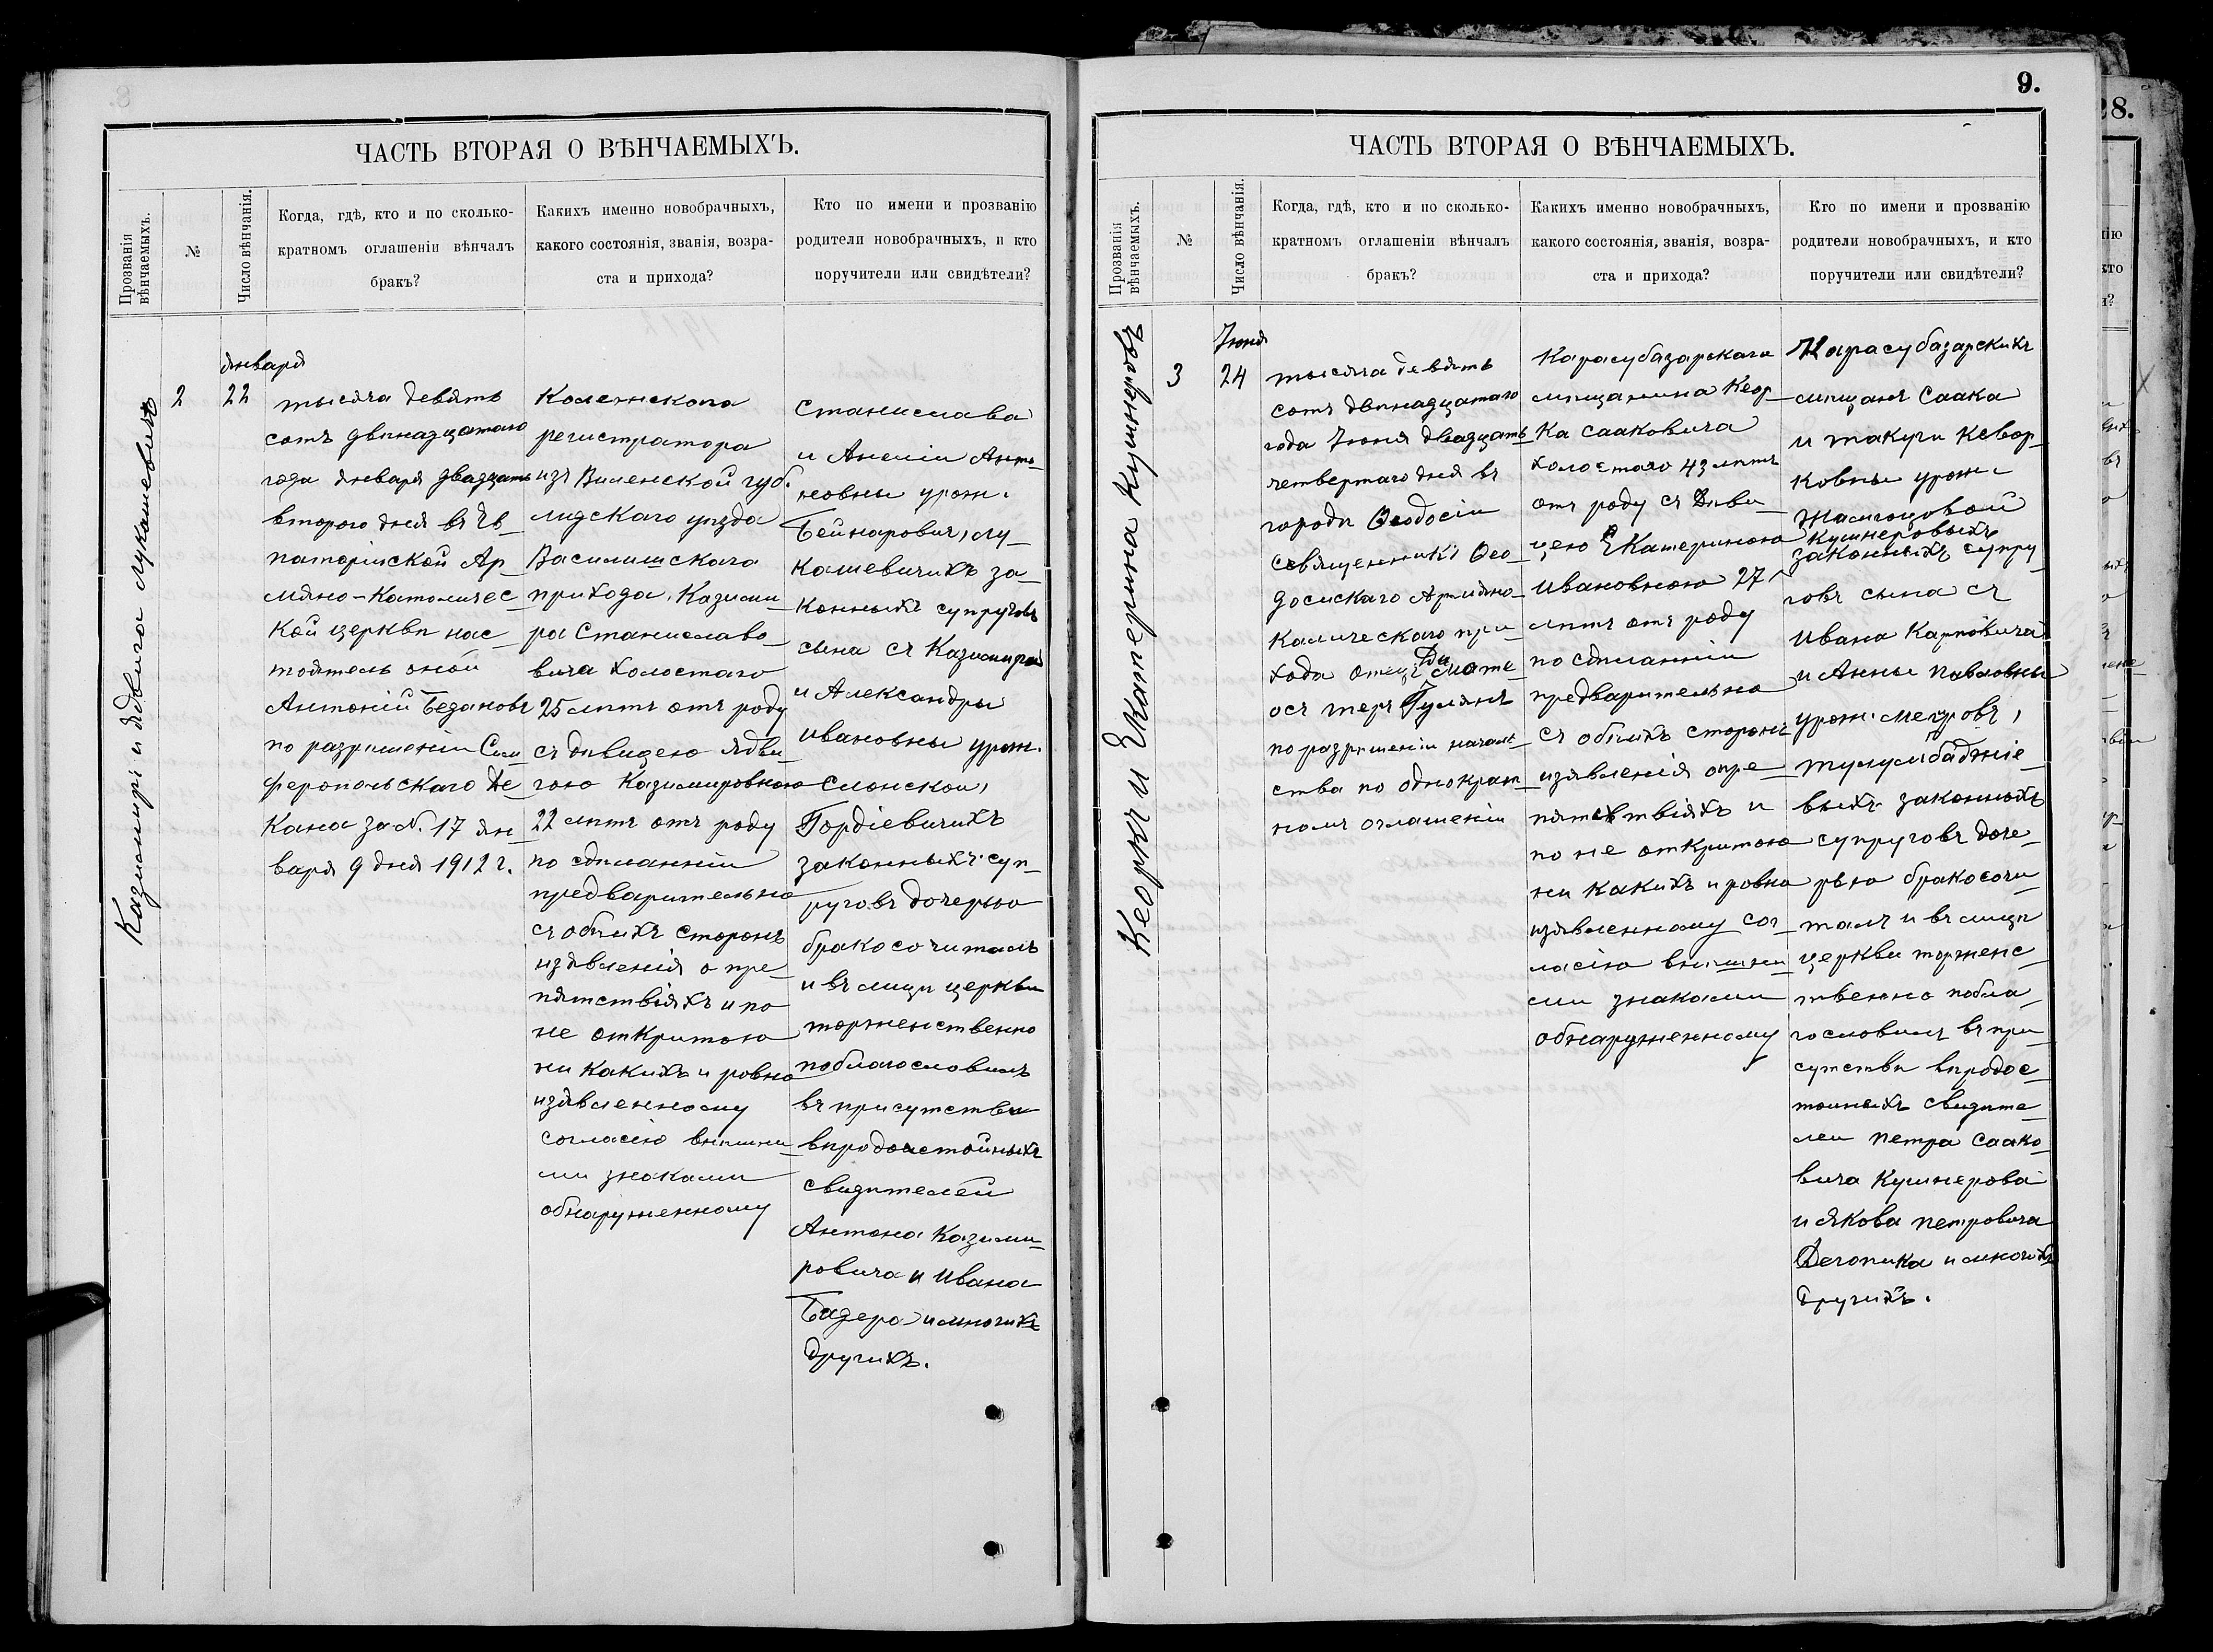 ЧАСТЬ ВТОРАЯ О ВѢНЧАЕМЫХЪ.
Прозванія
вѣнчаемыхъ.
№
Число вѣнчанія.
Когда, гдѣ, кто и по сколько-
кратномъ оглашеніи вѣнчалъ
бракъ?
Какихъ именно новобрачныхъ,
какого состоянія, званія, возра-
ста и прихода?
Кто по имени и прозванію
родители новобрачныхъ, и кто
поручители или свидѣтели?
Казимиръ и Ядвига Лукашевичъ
2
Января
22
тысяча девять
сотъ двѣнадцатаго
года Января двадцать
второго дня въ Ев-
паторійской Ар-
мяно-Католичес-
кой церкви нас-
тоятель оной
Антоній Безановъ
по разрѣшеніи Сим-
феропольскаго Де-
кана за N. 17 Ян-
варя 9 дня 1912 г.
Коллежскаго
регистратора
изъ Виленской губ.
лидскаго уѣзда
Василишскаго
прихода, Казими-
ра Станиславо-
вича холостаго
25 лѣтъ отъ роду
съ дѣвицею Ядви-
гою Казимировною
22 лѣтъ отъ роду
по сдѣланніи
предварительно
съ обѣихъ сторонъ
изявленія о пре-
пятствіяхъ и по
не откритою
ни какихъ и ровно
изявленному
согласію внѣшни-
ми знаками
обнаруженному
Станислава
и Анеліи Анто-
новны урож.
Бейнарович, Лу-
кашевичихъ за-
конныхъ супруговъ
сына съ Казимира
и Александры
Ивановны урож.
Слонской,
Гордіевичихъ
законныхъ суп-
руговъ дочерью
бракосочиталъ
и въ лицѣ церкви
торжественно
поблагословилъ
въ присутствіи
впродостойныхъ
свидѣтелей
Антона Казими-
ровича и Ивана
Базера и многихъ
другихъ.
9.
ЧАСТЬ ВТОРАЯ О ВѢНЧАЕМЫХЪ.
Прозванія
вѣнчаемыхъ.
№
Число вѣнчанія.
Когда, гдѣ, кто и по сколько-
кратномъ оглашеніи вѣнчалъ
бракъ?
Какихъ именно новобрачныхъ,
какого состоянія, званія, возра-
ста и прихода?
Кто по имени и прозванію
родители новобрачныхъ, и кто
поручители или свидѣтели?
Кеоркъ и Екатерина Кушнеровъ
3
Іюня
24
тысяча девять
сотъ двѣнадцатаго
года Іюня двадцать
четвертаго дня въ
городѣ Ѳеодосіи
священникъ Ѳео-
досискаго Армяно-
Калическаго при-
хода отецъ Діоте-
осъ теръ Гулянъ
по разрѣшеніи началь-
ства по однократ-
номъ оглашеніи
Карасубазарскаго
мѣщанина Кеор-
ка Сааковича
холостаго 43 лѣтъ
отъ роду съ дѣви-
цею Екатериною
Ивановною 27
лѣтъ отъ роду
по сдѣланніи
предварительно
съ обѣихъ сторонъ
изявленія о пре-
пятствіяхъ и
по не откритою
ни какихъ и ровно
изявленному сог-
ласію внѣшни-
ми знаками
обнаруженному
Карасубазарскихъ
мѣщанъ Саака
и Такуги Кевор-
ковны урож.
Кушнеровыхъ
законныхъ супру-
говъ сына съ
Ивана Карповича
и Анны Павловны
урож. Мекровъ,
законныхъ
супруговъ доче-
рью бракосочи-
талъ и въ лицѣ
церкви торжес-
твенно побла-
гословилъ въ при-
сутствіи впродос-
тойныхъ свидѣте-
лей Петра Саако-
вича Кушнерова
и Якова Петровича
и многихъ
другихъ.
28.